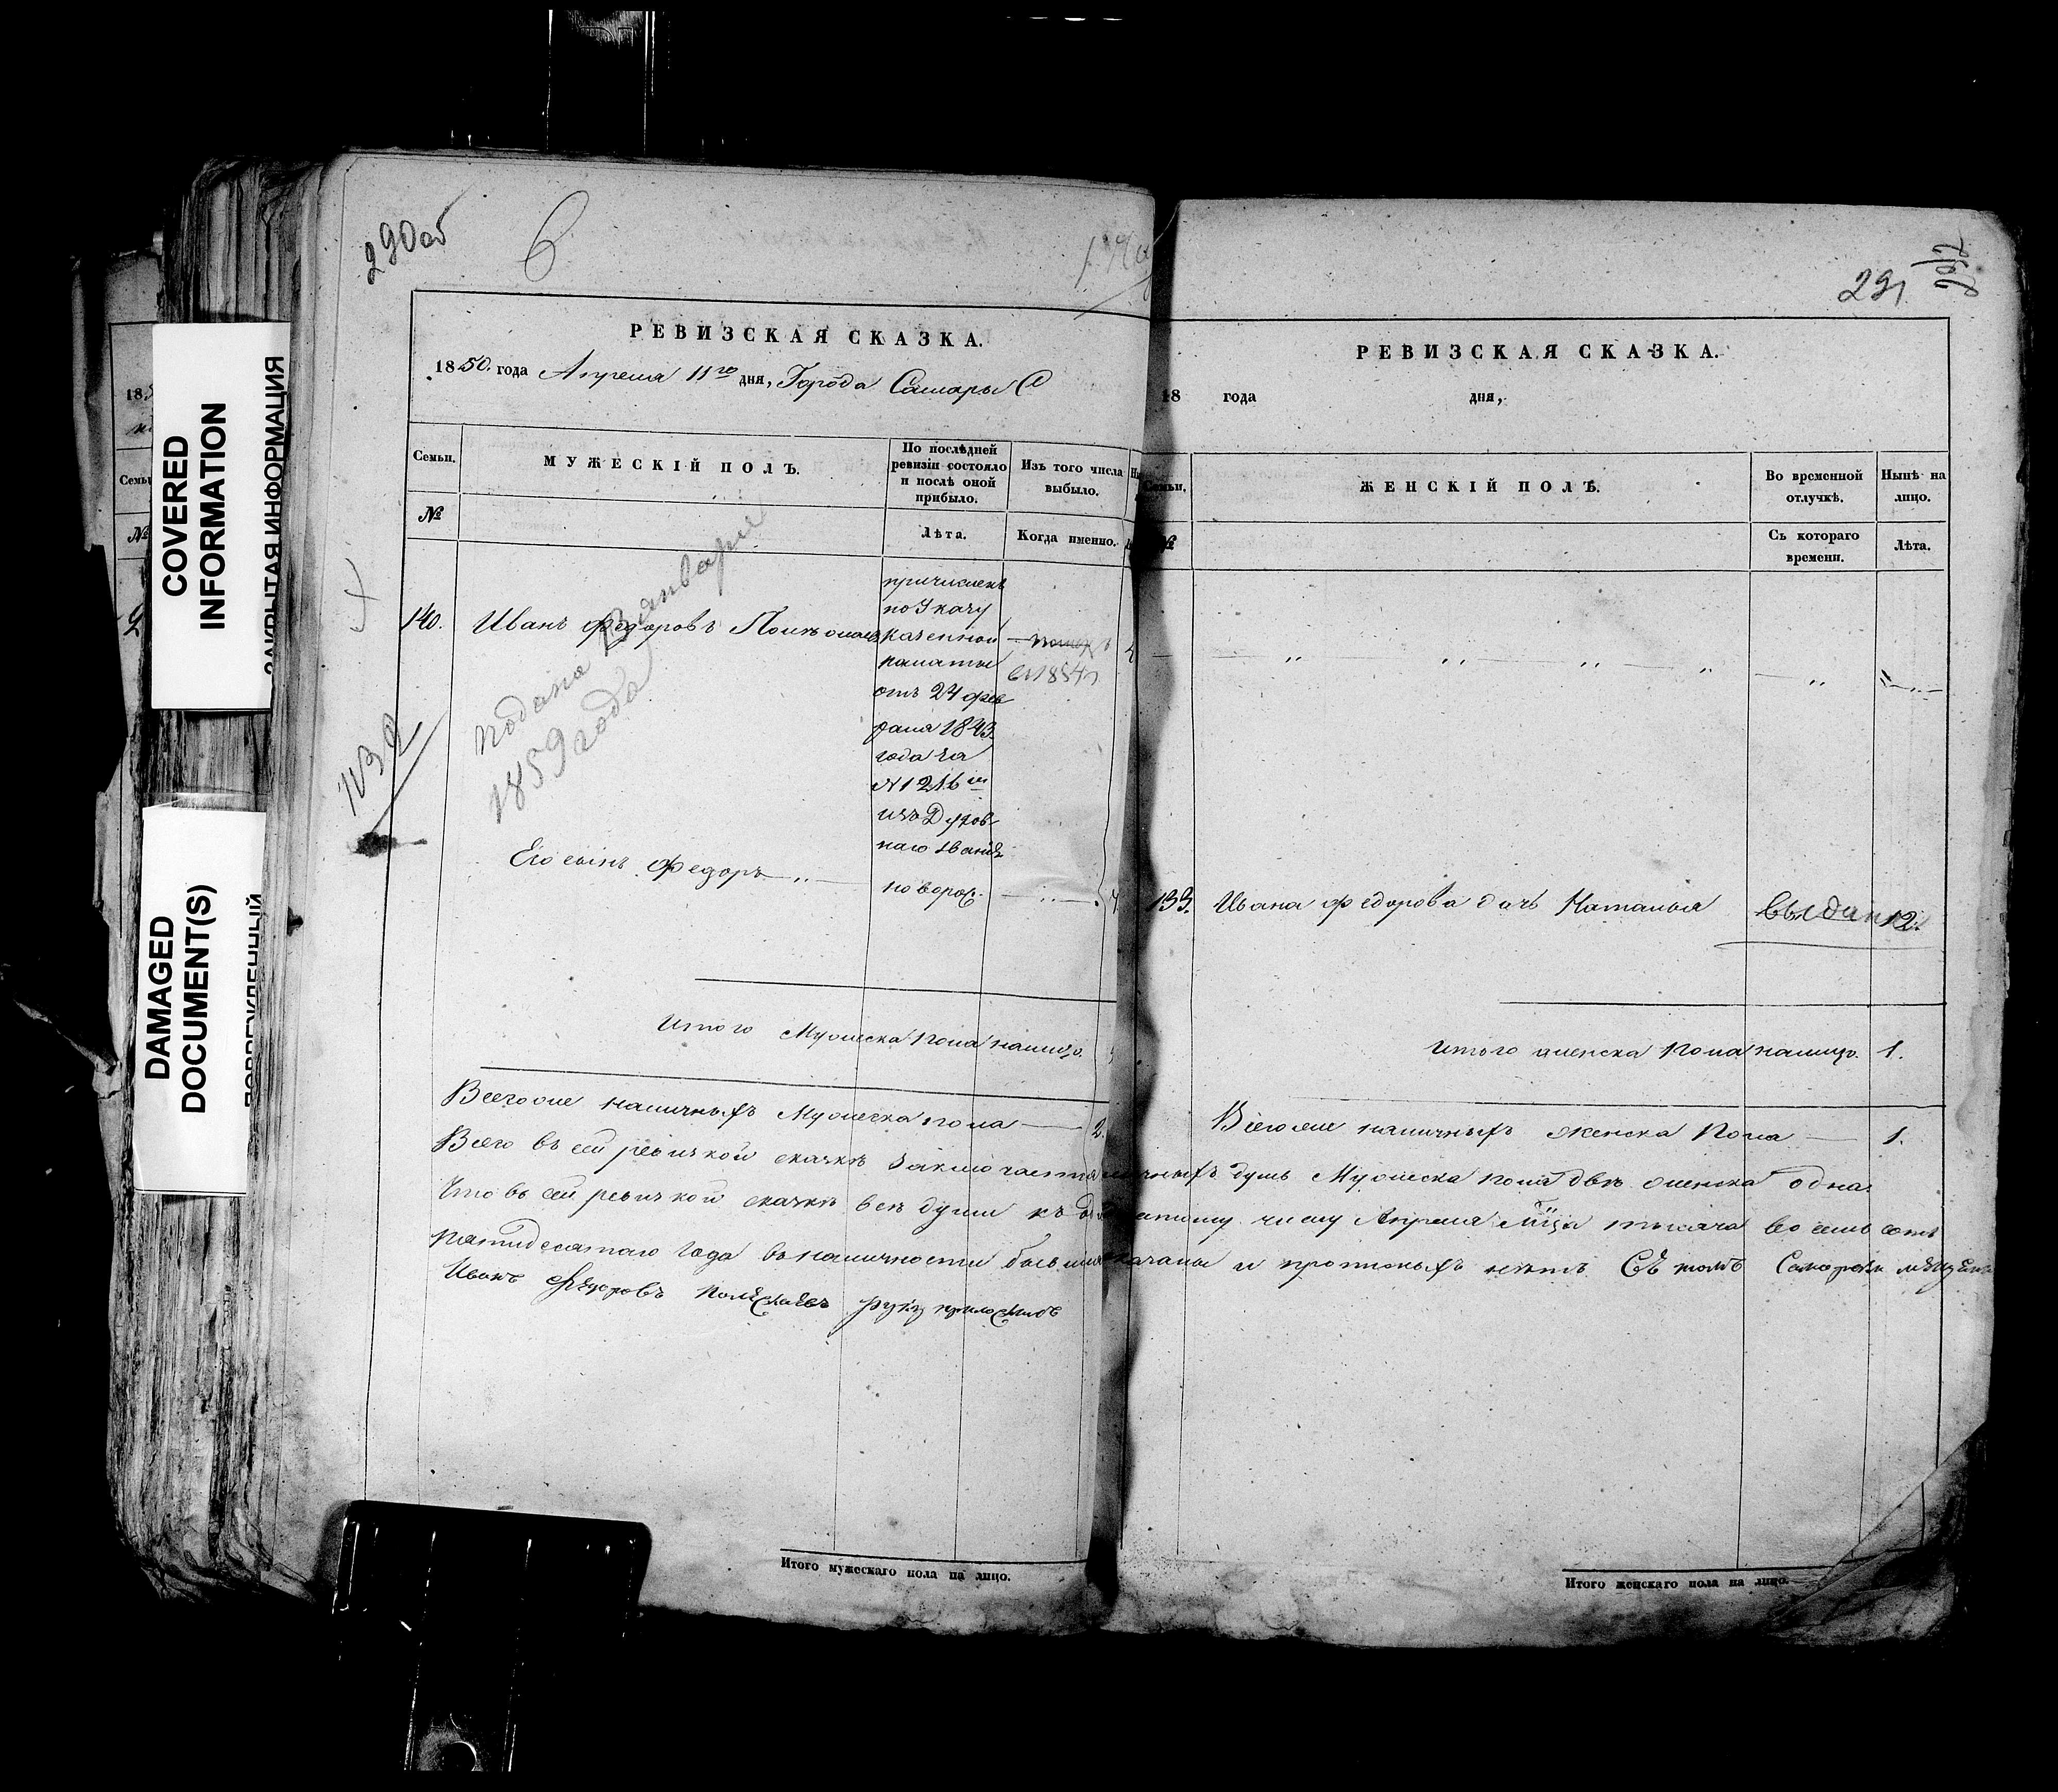 COVERED
INFORMATION
ЗАКРЫТАЯ ИНФОРМАЦИЯ
DAMAGED
DOCUMENT(S)
ПОВРЕЖДЕННЫЙ
290 об
6
291
РЕВИЗСКАЯ СКАЗКА.
1850. года Апреля 11го дня, Города Самары С
Семьи.
МУЖЕСКІЙ ПОЛЪ.
По послѣдней
ревизіи состояло
и послѣ оной
прибыло.
Изъ того числа
выбыло.
№
Лѣта.
Когда именно.
подана 13 января
1859 года
причисленъ
по Указу
казенной
палаты
отъ 24 фев
раля 1843
года за
№ 1216м
изъ Духов
наго звания
140. Иванъ Федоровъ
в 1854
Его сынъ Федоръ — „ —
новорож.
— „ —
1132
Итого Мужеска пола налицо.
Всего же наличныхъ Мужеска пола — 2.
РЕВИЗСКАЯ СКАЗКА.
18 года дня,
Семьи.
ЖЕНСКІЙ ПОЛЪ.
Во временной
отлучкѣ.
Нынѣ на
лицо.
№
Съ котораго
времени.
Лѣта.
133. Ивана Федорова дочь Наталья выдана 12.
Итого женска пола налицо. 1.
Всего же наличныхъ женска пола — 1.
Всего въ сей ревизкой сказкѣ заключается наличныхъ душъ Мужеска пола двѣ женска одна.
Что въ сей ревизкой сказкѣ всѣ души къ числу Апреля м̃ца тысяча восемь сотъ
пятидесятаго года въ наличности бывшия показаны и прописныхъ нѣтъ Въ томъ Самарски мѣщенинъ
Иванъ Федоровъ руку приложилъ
Итого мужескаго пола на лицо.
Итого женскаго пола на лицо.